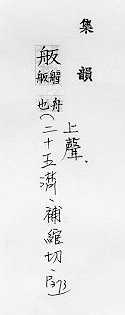 集韻
舨
舨
舟
也
上聲、
(二十五潸、補綰切、
73